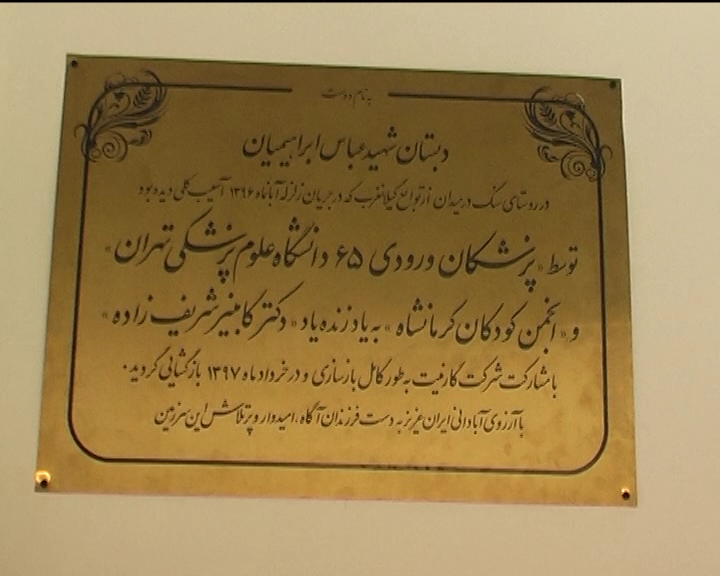 به نام دوست
دبستان شهید عباس ابراهیمیان
در روستای سنگ در میدان از توابع گیلانغرب که در جریان زلزله آبانماه ۱۳۹۶ آسیب کلی دیده بود
توسط « پزشکان ورودی ۶۵ دانشگاه علوم پزشکی تهران »
و « انجمن کودکان کرمانشاه » به یاد زنده یاد « دکتر کامبیز شریف زاده »
با مشارکت شرکت کارنیت به طور کامل بازسازی و در خرداد ماه ۱۳۹۷ بازگشایی گردید.
با آرزوی آبادانی ایران عزیز به دست فرزندان آگاه، امیدوار و پرتلاش این سرزمین